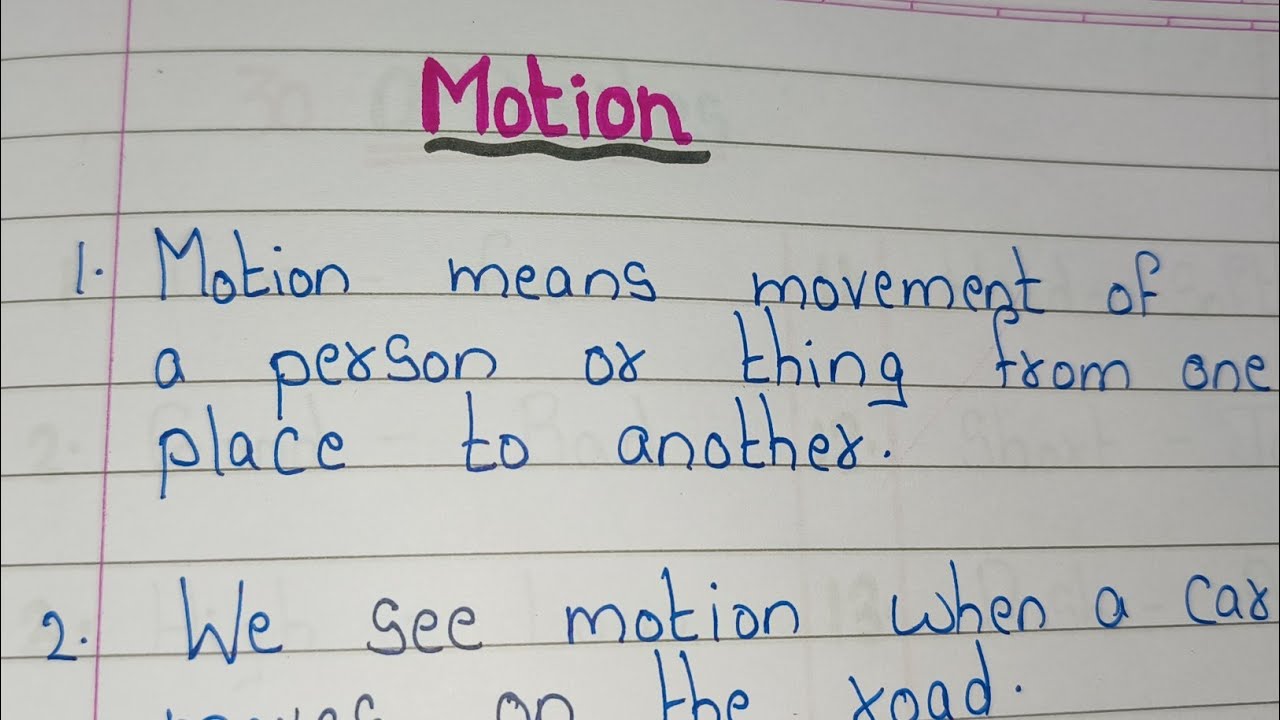 Motion
1. Motion means movement of
a person or thing from one
place to another.
2. We see motion when a car
moves on the road.